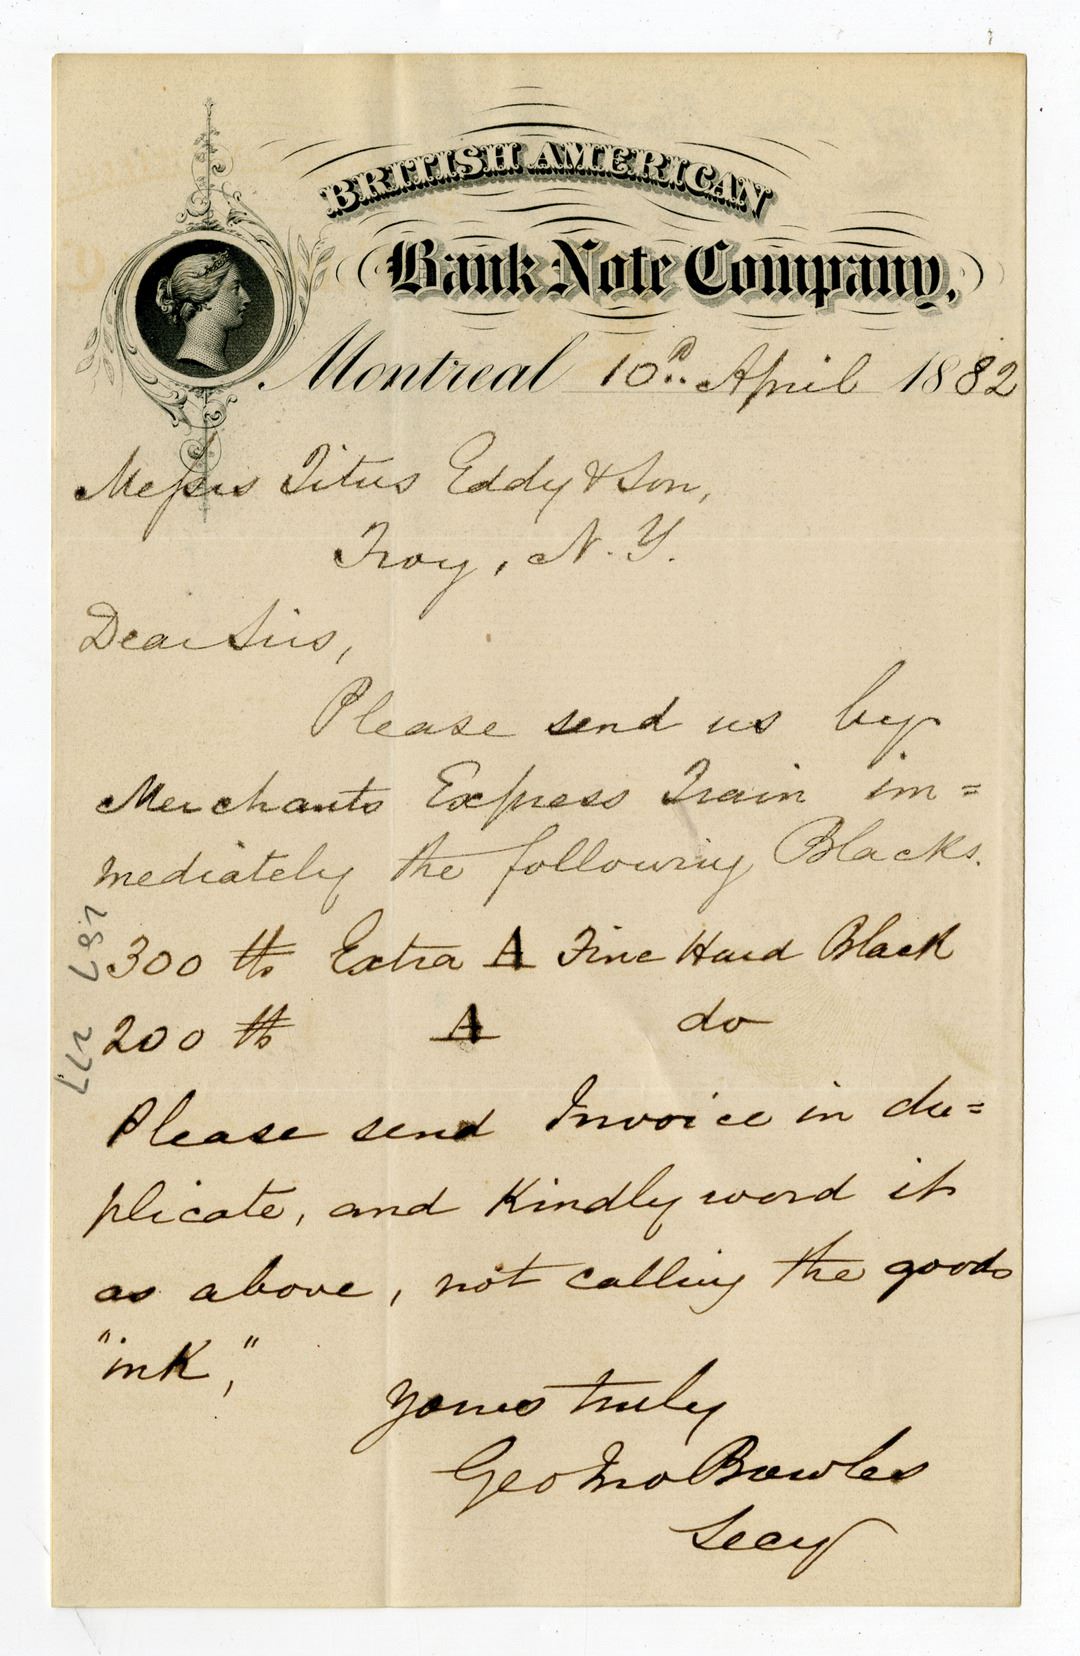 BRITISH AMERICAN
Bank Note Company,
Montreal 10th April 1882
Messrs Titus Eddy & Son,
Troy, N.Y.
Dear Sirs,
Please send us by
Merchants Express Train im=
mediately the following Blacks.
300 lb Extra A Fine Hard Black
200 lb A do
Please send Invoice in du=
plicate, and Kindly word it
as above, not calling the goods
"inK,"
Yours truly
Geo Jno Bowles
Secy